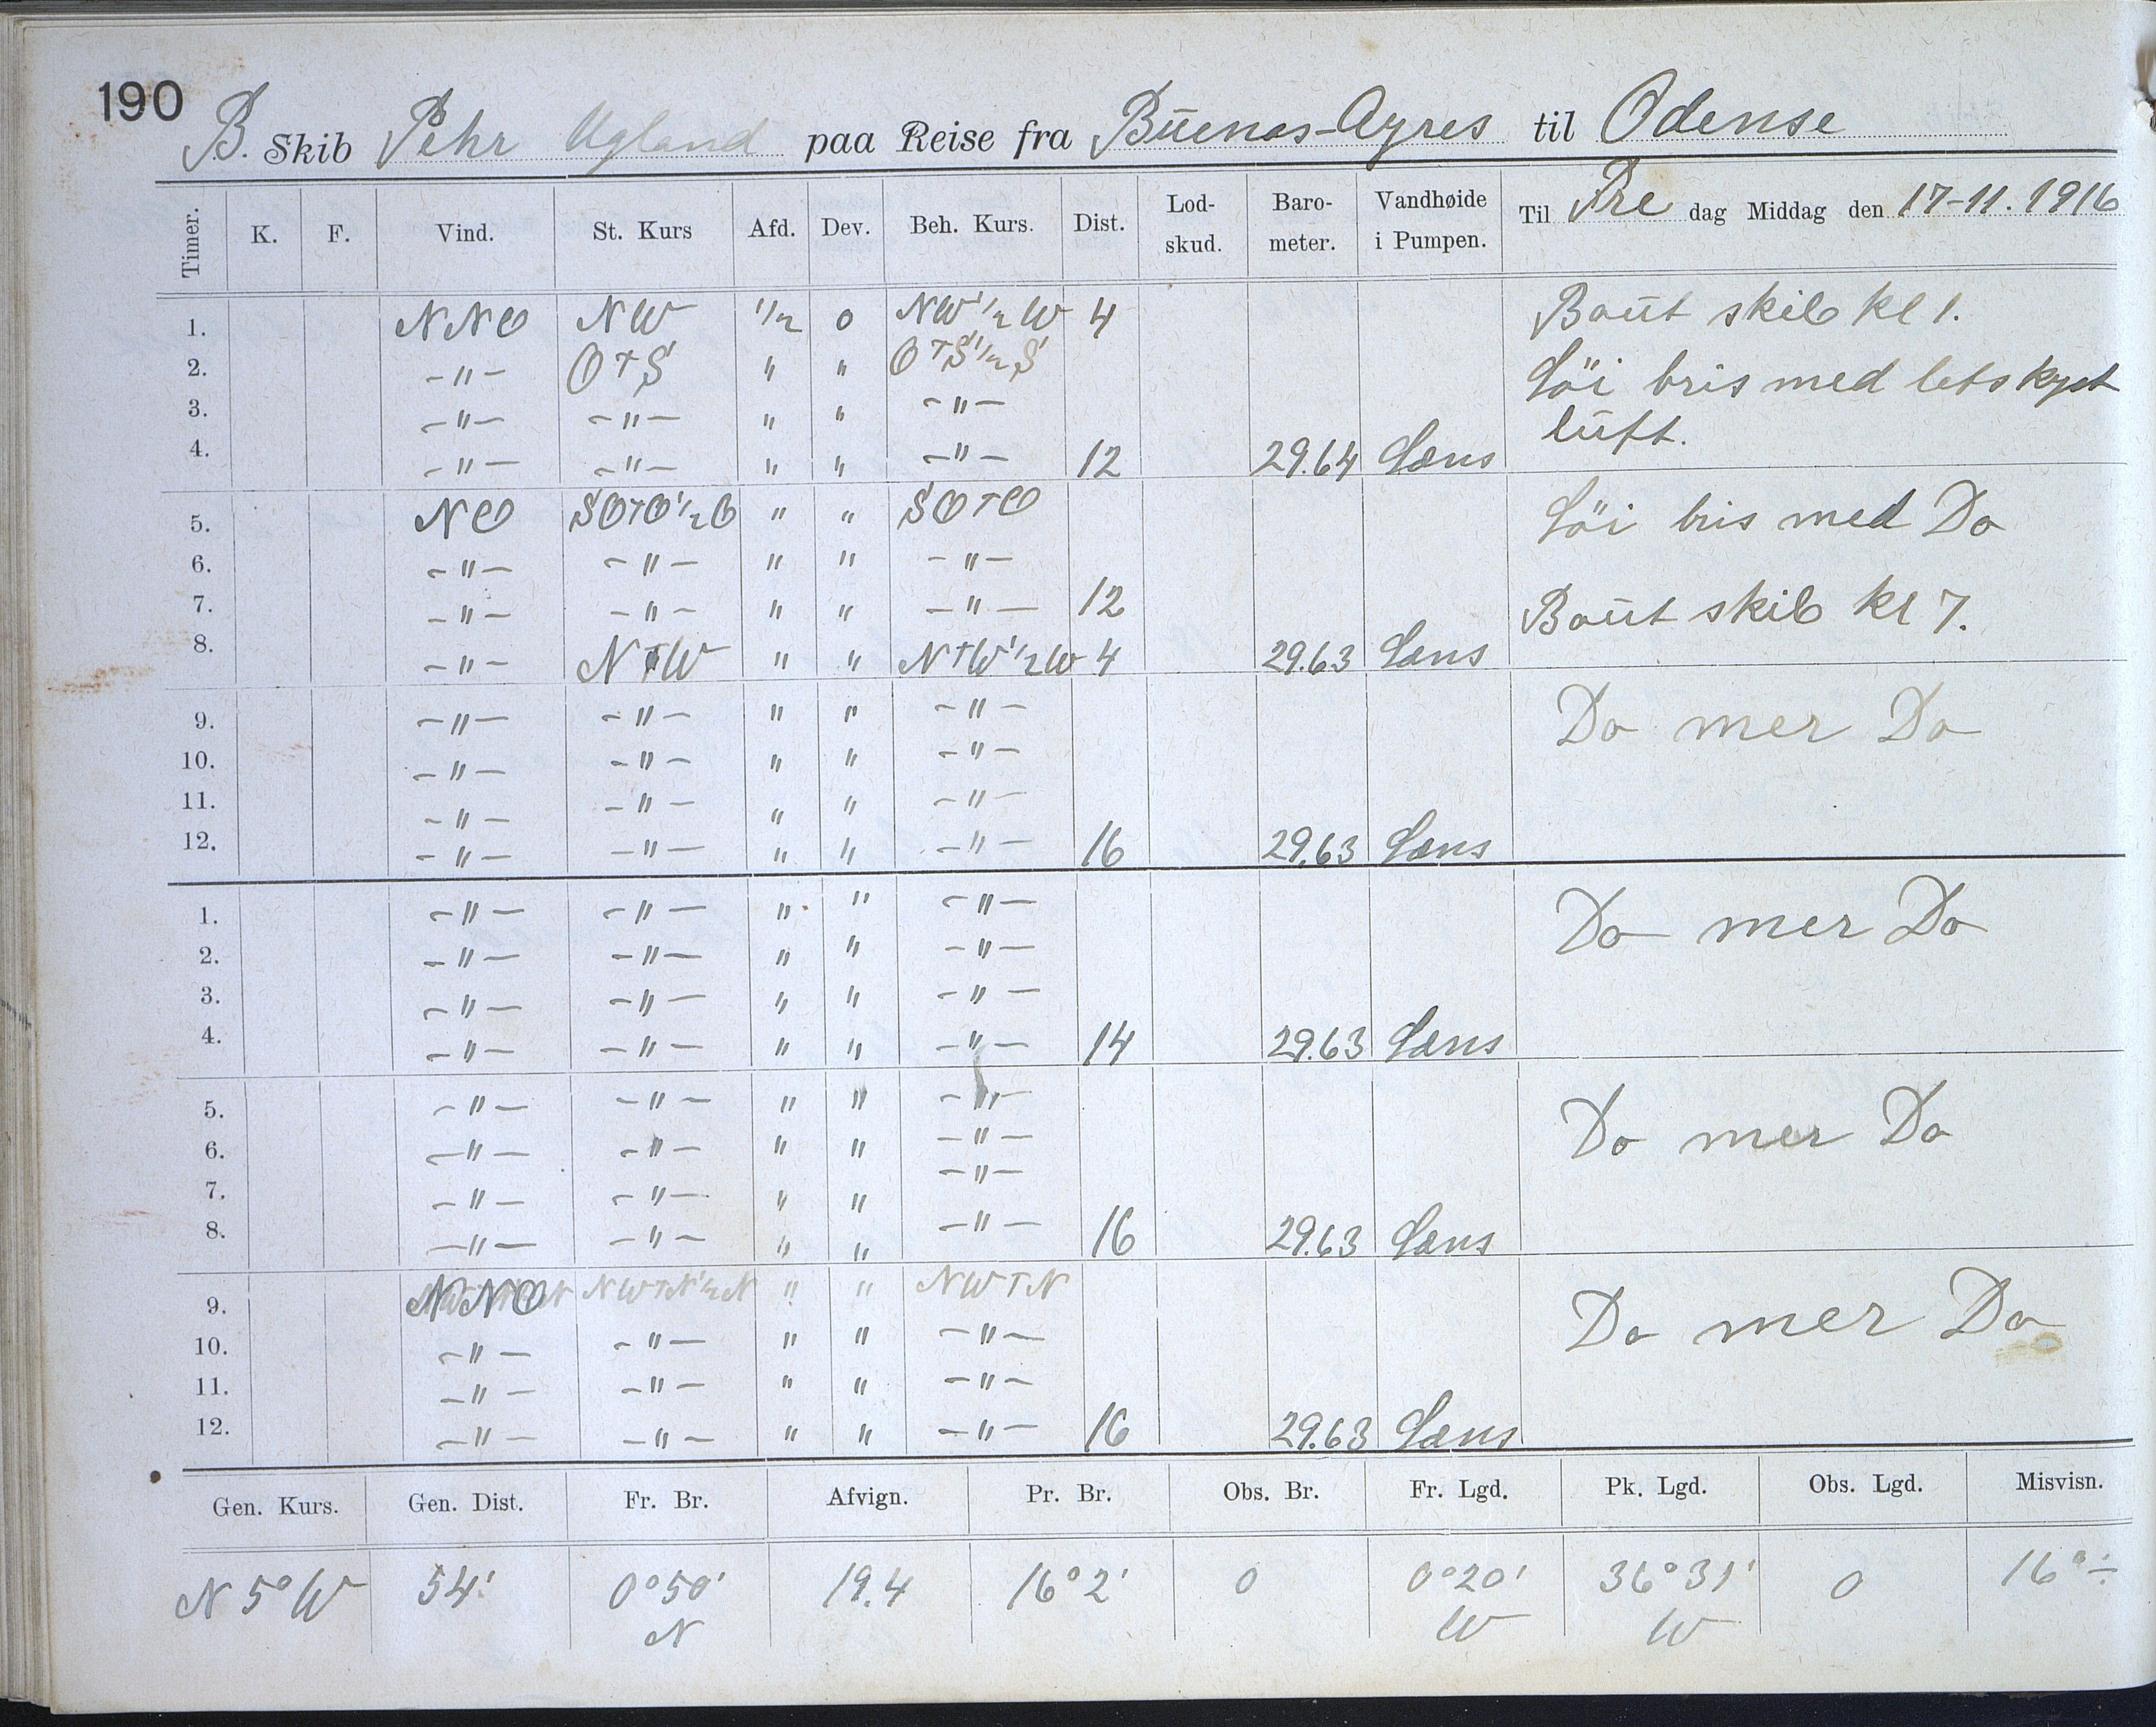 190
B. Skib Pehr Ugland paa Reise fra Buenos-Ayres til Odense
Timer. K. F. Vind. St. Kurs Afd. Dev. Beh. Kurs. Dist. Lod-skud. Baro-meter. Vandhøide i Pumpen. Til Fre dag Middag den 17-11.1916
1. NNO NW 1/2 0 NW 1/2 W 4 Baut skib kl 1.
2. -"- OTS " " OTS 1/2 S Löi bris med letskyet
3. -"- -"- " " -"- luft.
4. -"- -"- " " -"- 12 29.64 Læns
5. NO SOTO 1/2 O " " SOTO Löi bris med Do
6. -"- -"- " " -"-
7. -"- -"- " " -"- 12 Baut skib kl 7.
8. -"- NTW " " NTW 1/2 W 4 29.63 Læns
9. -"- -"- " " -"- Do mer Do
10. -"- -"- " " -"-
11. -"- -"- " " -"-
12. -"- -"- " " -"- 16 29.63 Læns
1. -"- -"- " " -"- Do mer Do
2. -"- -"- " " -"-
3. -"- -"- " " -"-
4. -"- -"- " " -"- 14 29.63 Læns
5. -"- -"- " " -"- Do mer Do
6. -"- -"- " " -"-
7. -"- -"- " " -"-
8. -"- -"- " " -"- 16 29.63 Læns
9. NNO NWTN 1/2 N " " NWTN Do mer Do
10. -"- -"- " " -"-
11. -"- -"- " " -"-
12. -"- -"- " " -"- 16 29.63 Læns
Gen. Kurs. Gen. Dist. Fr. Br. Afvign. Pr. Br. Obs. Br. Fr. Lgd. Pk. Lgd. Obs. Lgd. Misvisn.
N 5° W 54' 0°50' 19.4 16°2' 0 0°20' 36°31' 0 16°÷
N W W